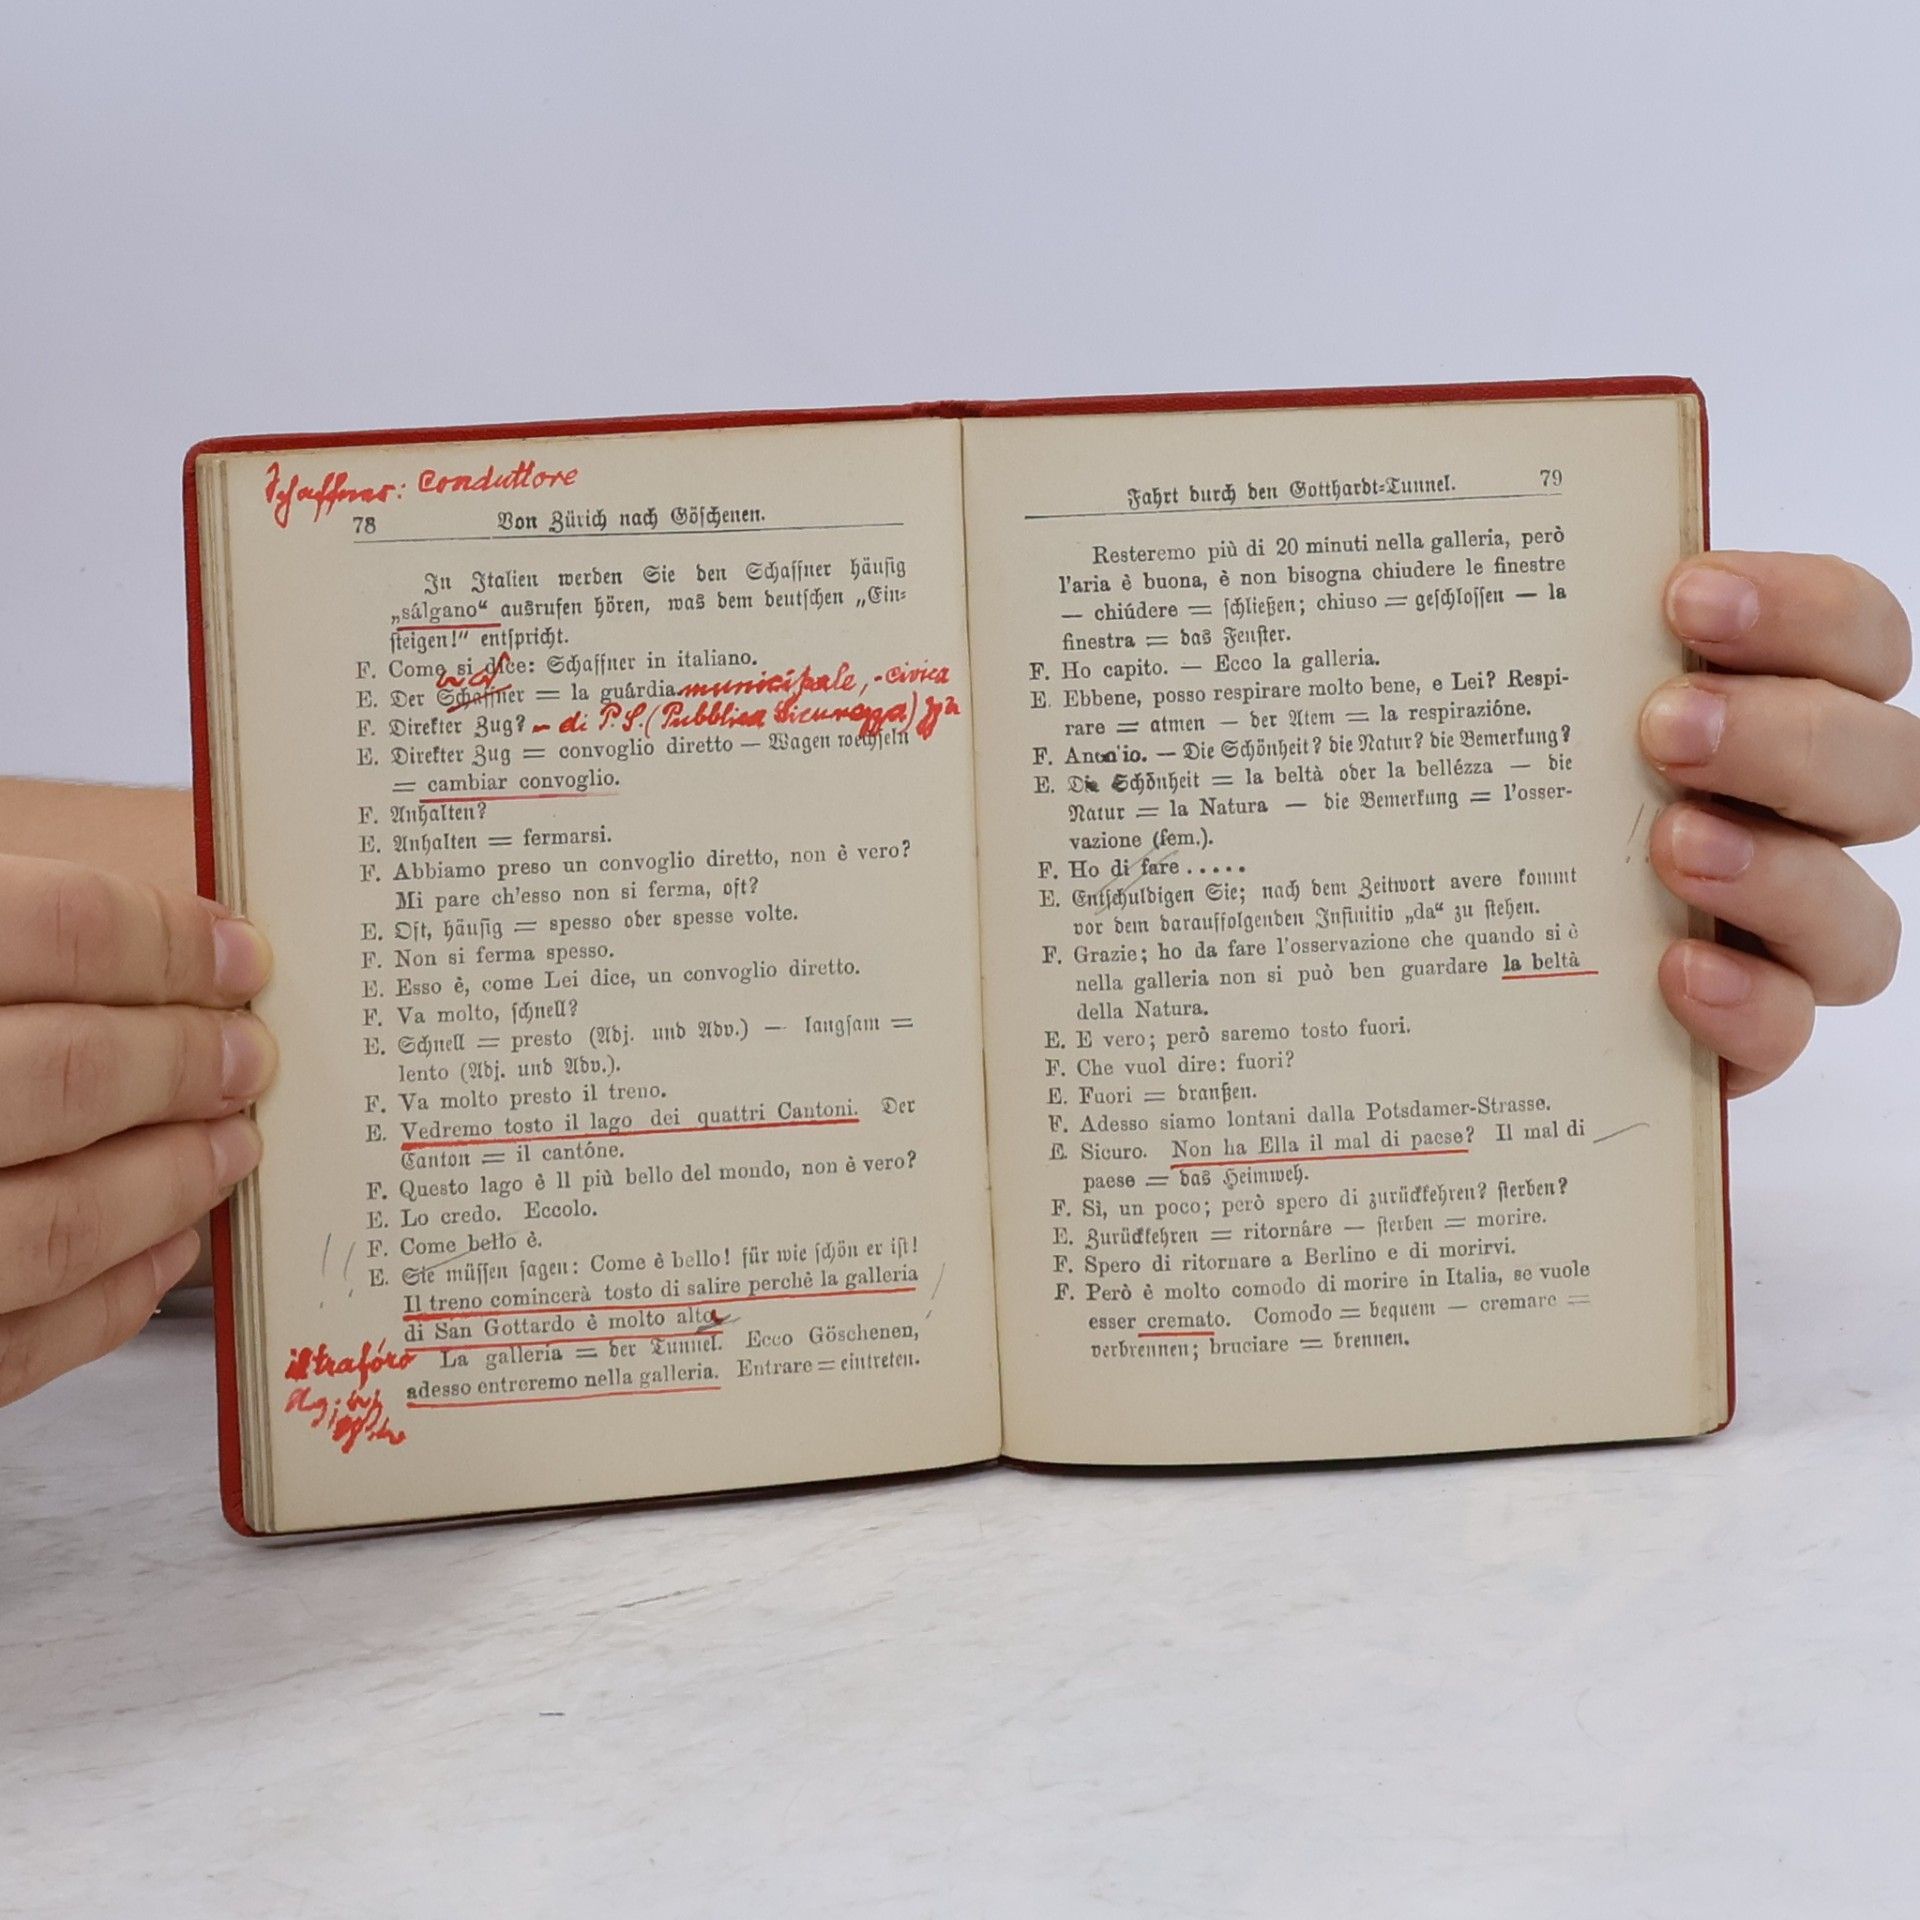 Schaffner: conduttore
78 Von Zürich nach Göschenen.
In Italien werden Sie den Schaffner häufig
„sálgano“ ausrufen hören, was dem deutschen „Ein-
steigen!“ entspricht.
F. Come si dice: Schaffner in italiano.
E. Der Schaffner = la guárdia municipale, - civica
F. Direkter Zug? - di P. S. (Pubblica Sicurezza)
E. Direkter Zug = convoglio diretto — Wagen wechseln
= cambiar convoglio.
F. Anhalten?
E. Anhalten = fermarsi.
F. Abbiamo preso un convoglio diretto, non è vero?
Mi pare ch'esso non si ferma, oft?
E. Oft, häufig = spesso oder spesse volte.
F. Non si ferma spesso.
E. Esso è, come Lei dice, un convoglio diretto.
F. Va molto, schnell?
E. Schnell = presto (Adj. und Adv.) — langsam =
lento (Adj. und Adv.).
F. Va molto presto il treno.
E. Vedremo tosto il lago dei quattri Cantoni. Der
Canton = il cantóne.
F. Questo lago è ll più bello del mondo, non è vero?
E. Lo credo. Eccolo.
F. Come bello è.
E. Sie müssen sagen: Come è bello! für wie schön er ist!
Il treno comincerà tosto di salire perchè la galleria
di San Gottardo è molto alta
il trafóro La galleria = der Tunnel. Ecco Göschenen,
adesso entreremo nella galleria. Entrare = eintreten.
Fahrt durch den Gotthardt-Tunnel. 79
Resteremo più di 20 minuti nella galleria, però
l'aria è buona, è non bisogna chiudere le finestre
— chiúdere = schließen; chiuso = geschlossen — la
finestra = das Fenster.
F. Ho capito. — Ecco la galleria.
E. Ebbene, posso respirare molto bene, e Lei? Respi-
rare = atmen — der Atem = la respirazióne.
F. Anch'io. — Die Schönheit? die Natur? die Bemerkung?
E. Die Schönheit = la beltà oder la bellézza — die
Natur = la Natura — die Bemerkung = l'osser-
vazione (fem.).
F. Ho di fare . . . . .
E. Entschuldigen Sie; nach dem Zeitwort avere kommt
vor dem darauffolgenden Infinitiv „da“ zu stehen.
F. Grazie; ho da fare l'osservazione che quando si è
nella galleria non si può ben guardare la beltà
della Natura.
E. E vero; però saremo tosto fuori.
F. Che vuol dire: fuori?
E. Fuori = draußen.
F. Adesso siamo lontani dalla Potsdamer-Strasse.
E. Sicuro. Non ha Ella il mal di paese? Il mal di
paese = das Heimweh.
F. Sì, un poco; però spero di zurückkehren? sterben?
E. Zurückkehren = ritornáre — sterben = morire.
F. Spero di ritornare a Berlino e di morirvi.
F. Però è molto comodo di morire in Italia, se vuole
esser cremato. Comodo = bequem — cremare =
verbrennen; bruciare = brennen.